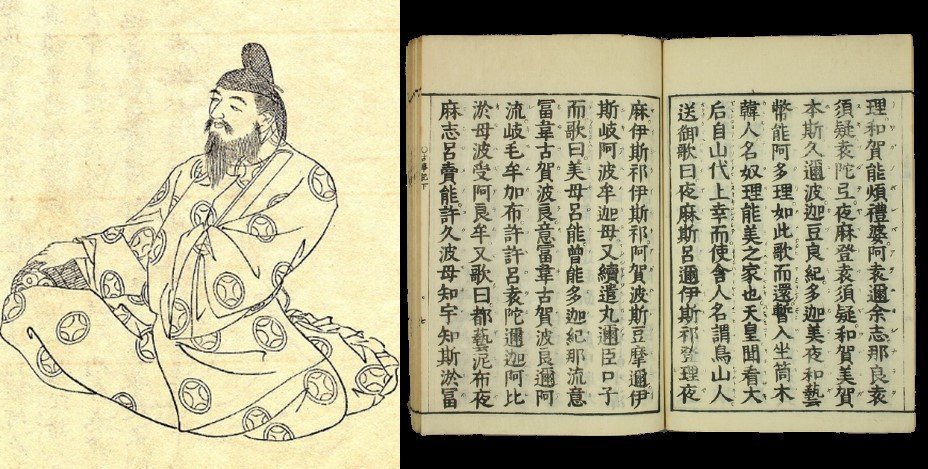 理和賀能煩禮婆阿袁邇余志那良袁
須疑袁陀弖夜麻登袁須疑和賀美賀
本斯久邇波迦豆良紀多迦美夜和藝
幣能阿多理如此歌而還暫入坐筒木
韓人名奴理能美之家也天皇聞看大
后自山代上幸而使舍人名謂鳥山人
送御歌曰夜麻斯呂邇伊斯祁登理夜
麻伊斯祁伊斯祁阿賀波斯豆麿邇伊
斯岐阿波牟迦母又續遣丸邇臣口子
而歌曰美母呂能曾能多迦紀那流意
冨韋古賀波良意冨韋古賀波良邇阿
流岐毛牟加布許許呂袁陀邇迦阿比
淤母波受阿良牟又歌曰都藝泥布夜
麻志呂賣能許久波母知宇知斯淤冨